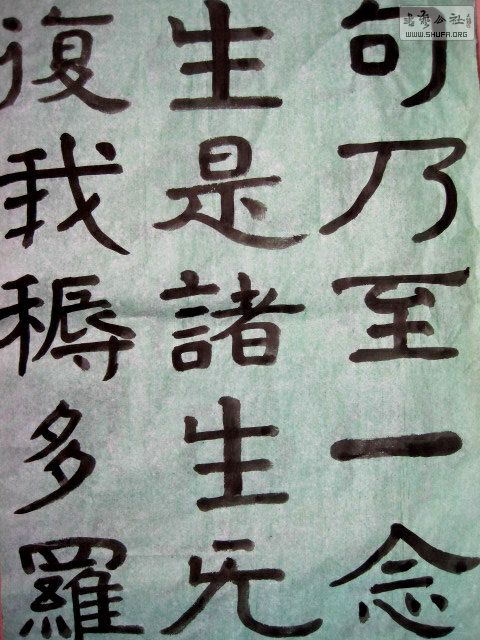 句乃至一念
生是諸生无
復我耨多羅
书艺公社
WWW.SHUFA.ORG